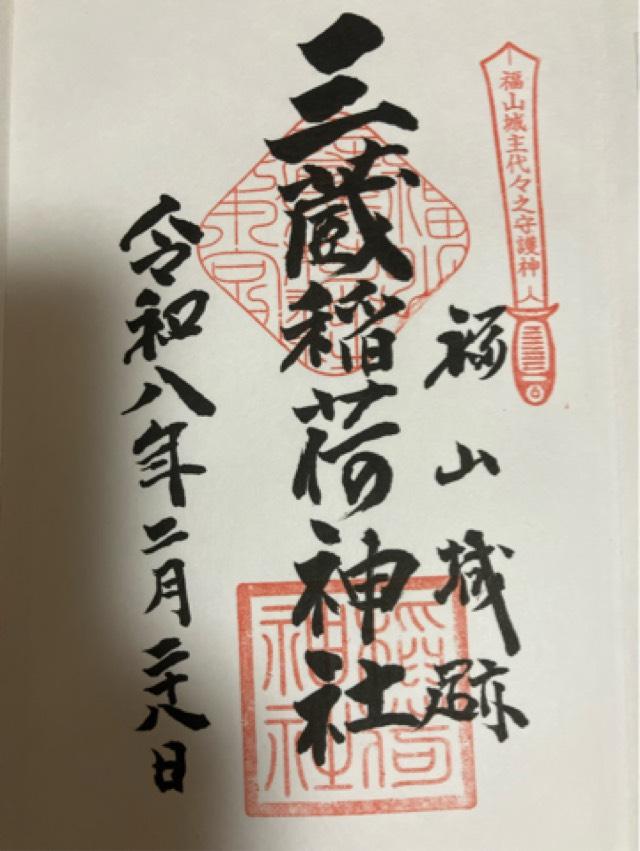 福山城主代々之守護神
福山城跡
三蔵稲荷神社
令和八年二月二十八日
稲荷神社